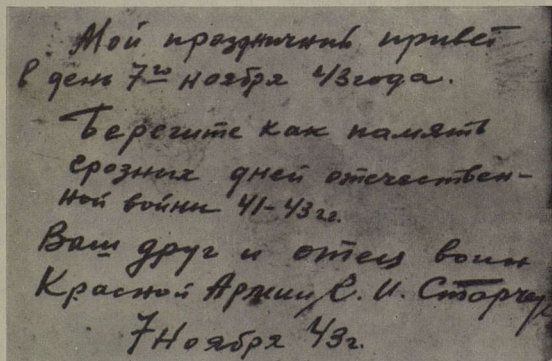 Мой праздничный привет
в день 7го ноября 43 года.
Берегите как память
грозных дней отечествен-
ной войны 41-43 гг.
Ваш друг и отец воин
Красной Армии С. И.
7 Ноября 43 г.